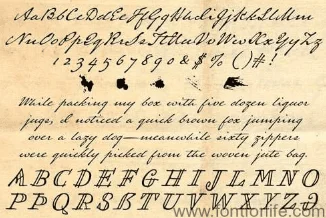 AaBbCcDdEeFfGgHhIiJjKkLlMm
NnOoPpQqRrSsTtUuVvWwXxYyZz
1234567890&$%()#!
While packing my box with five dozen liquor
jugs, I noticed a quick brown fox jumping
over a lazy dog—meanwhile sixty zippers
were quickly picked from the woven jute bag.
ABCDEFGHIJLMNO
PPQRSBTUVWXYZ
www.fontforlife.com